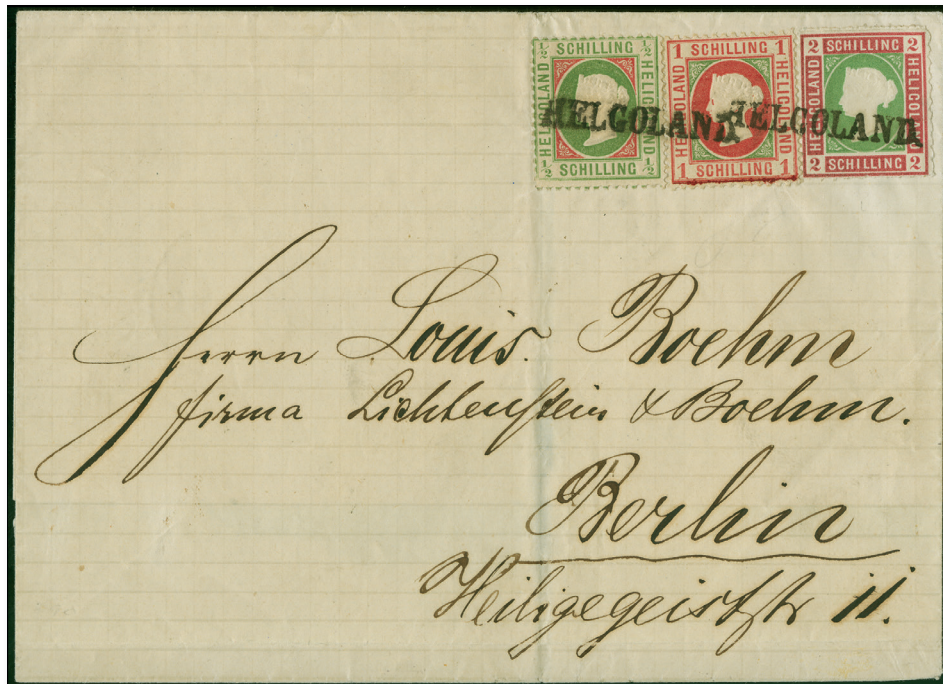 ½ SCHILLING ½
HELIGOLAND
HELIGOLAND
½ SCHILLING ½
1 SCHILLING 1
HELIGOLAND
HELIGOLAND
1 SCHILLING 1
2 SCHILLING 2
HELIGOLAND
HELIGOLAND
2 SCHILLING 2
HELGOLAND HELGOLAND
Herrn Louis. Boehm
firma Lichtenstein & Boehm.
Berlin
Heiligegeiststr 11.